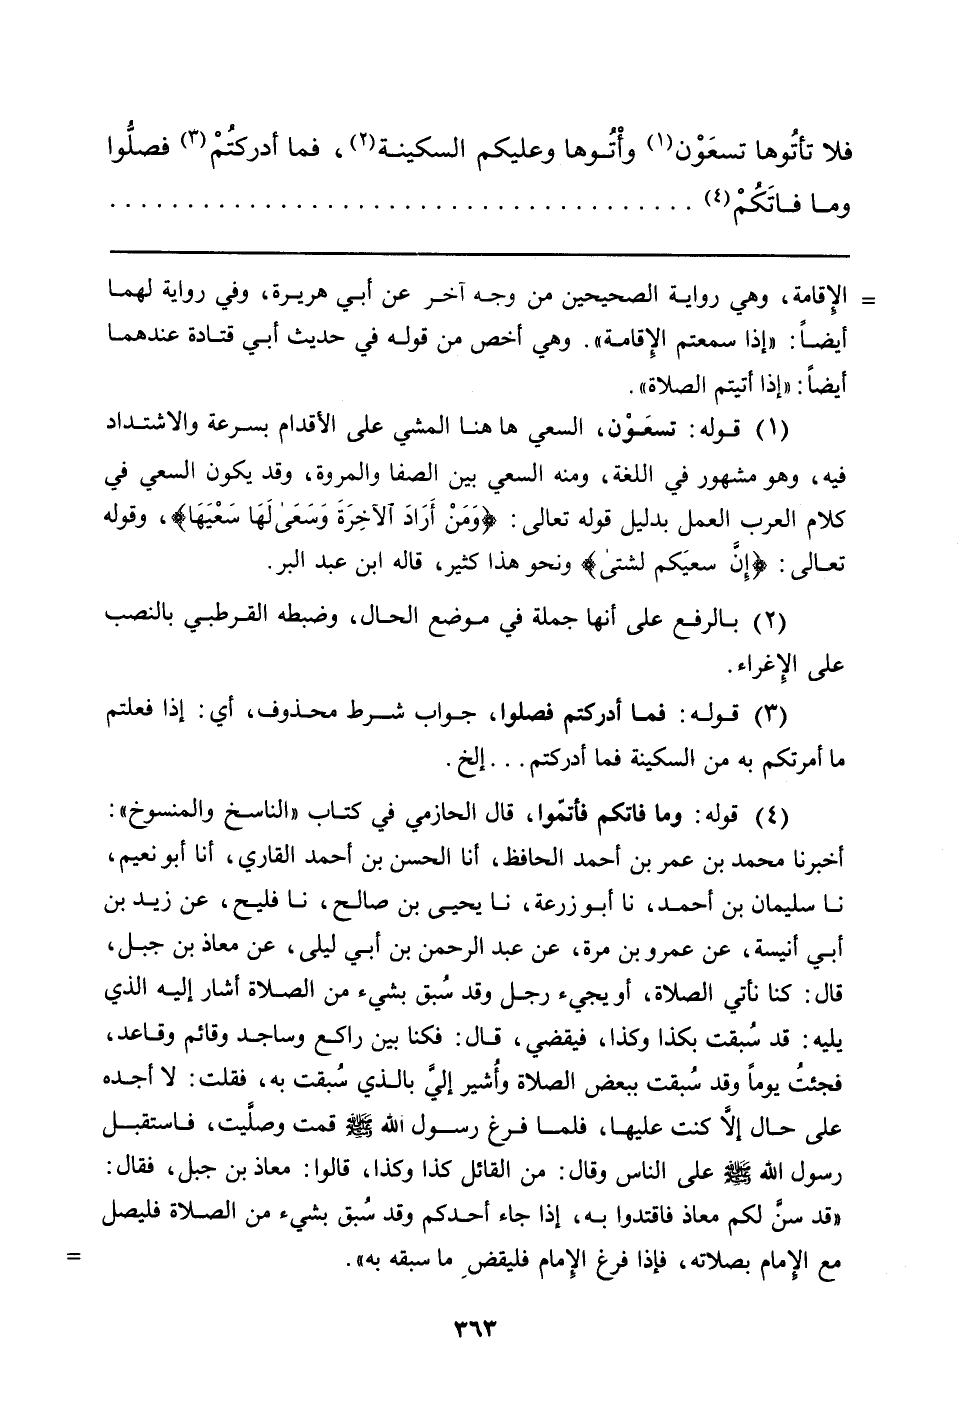 فلا تأتُوها تسعَوْن(١) وأْتُوها وعليكم السكينة(٢)، فما أدركتُمْ(٣) فصلُّوا
وما فاتَكُمْ(٤) . . . . . . . . . . . . . . . . . . . . . . . . . . . . . . . . . . . . .
= الإقامة، وهي رواية الصحيحين من وجه آخر عن أبي هريرة، وفي رواية لهما
أيضاً: «إذا سمعتم الإقامة». وهي أخص من قوله في حديث أبي قتادة عندهما
أيضاً: «إذا أتيتم الصلاة».
(١) قوله: تسعَوْن، السعي ها هنا المشي على الأقدام بسرعة والاشتداد
فيه، وهو مشهور في اللغة، ومنه السعي بين الصفا والمروة، وقد يكون السعي في
كلام العرب العمل بدليل قوله تعالى: ﴿وَمَنْ أَرَادَ ٱلآخِرَةَ وَسَعَىٰ لَهَا سَعْيَهَا﴾، وقوله
تعالى: ﴿إنَّ سعيَكم لشتىٰ﴾ ونحو هذا كثير، قاله ابن عبد البر.
(٢) بالرفع على أنها جملة في موضع الحال، وضبطه القرطبي بالنصب
على الإغراء.
(٣) قوله: فما أدركتم فصلوا، جواب شرط محذوف، أي: إذا فعلتم
ما أمرتكم به من السكينة فما أدركتم... إلخ.
(٤) قوله: وما فاتكم فأتمّوا، قال الحازمي في كتاب «الناسخ والمنسوخ»:
أخبرنا محمد بن عمر بن أحمد الحافظ، أنا الحسن بن أحمد القاري، أنا أبو نعيم،
نا سليمان بن أحمد، نا أبو زرعة، نا يحيى بن صالح، نا فليح، عن زيد بن
أبي أنيسة، عن عمرو بن مرة، عن عبد الرحمن بن أبي ليلى، عن معاذ بن جبل،
قال: كنا نأتي الصلاة، أو يجيء رجل وقد سُبق بشيء من الصلاة أشار إليه الذي
يليه: قد سُبقت بكذا وكذا، فيقضي، قال: فكنا بين راكع وساجد وقائم وقاعد،
فجئتُ يوماً وقد سُبقت ببعض الصلاة وأُشير إليَّ بالذي سُبقت به، فقلت: لا أجده
على حال إلاَّ كنت عليها، فلما فرغ رسول الله ﷺ قمت وصلَّيت، فاستقبل
رسول الله ﷺ على الناس وقال: من القائل كذا وكذا، قالوا: معاذ بن جبل، فقال:
«قد سنَّ لكم معاذ فاقتدوا به، إذا جاء أحدكم وقد سُبق بشيء من الصلاة فليصل
مع الإمام بصلاته، فإذا فرغ الإمام فليقضِ ما سبقه به». =
٣٦٣